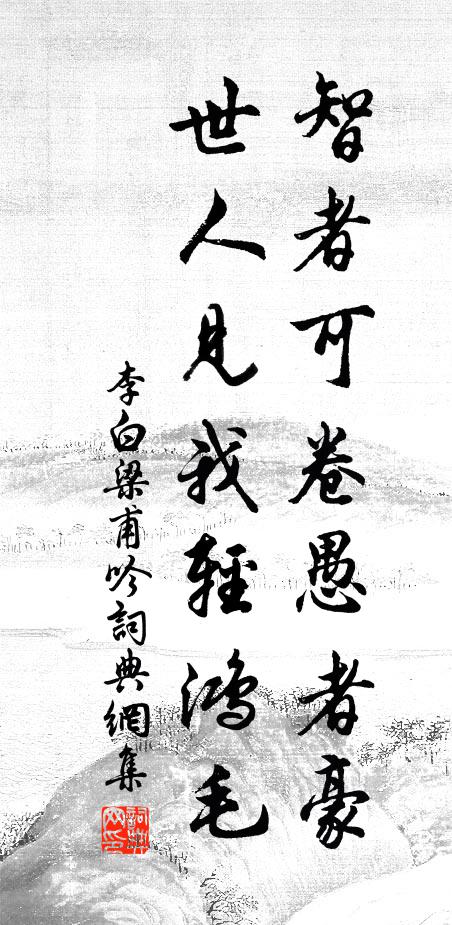 智者可卷愚者豪
世人見我輕鴻毛
李白梁甫吟詞典網集